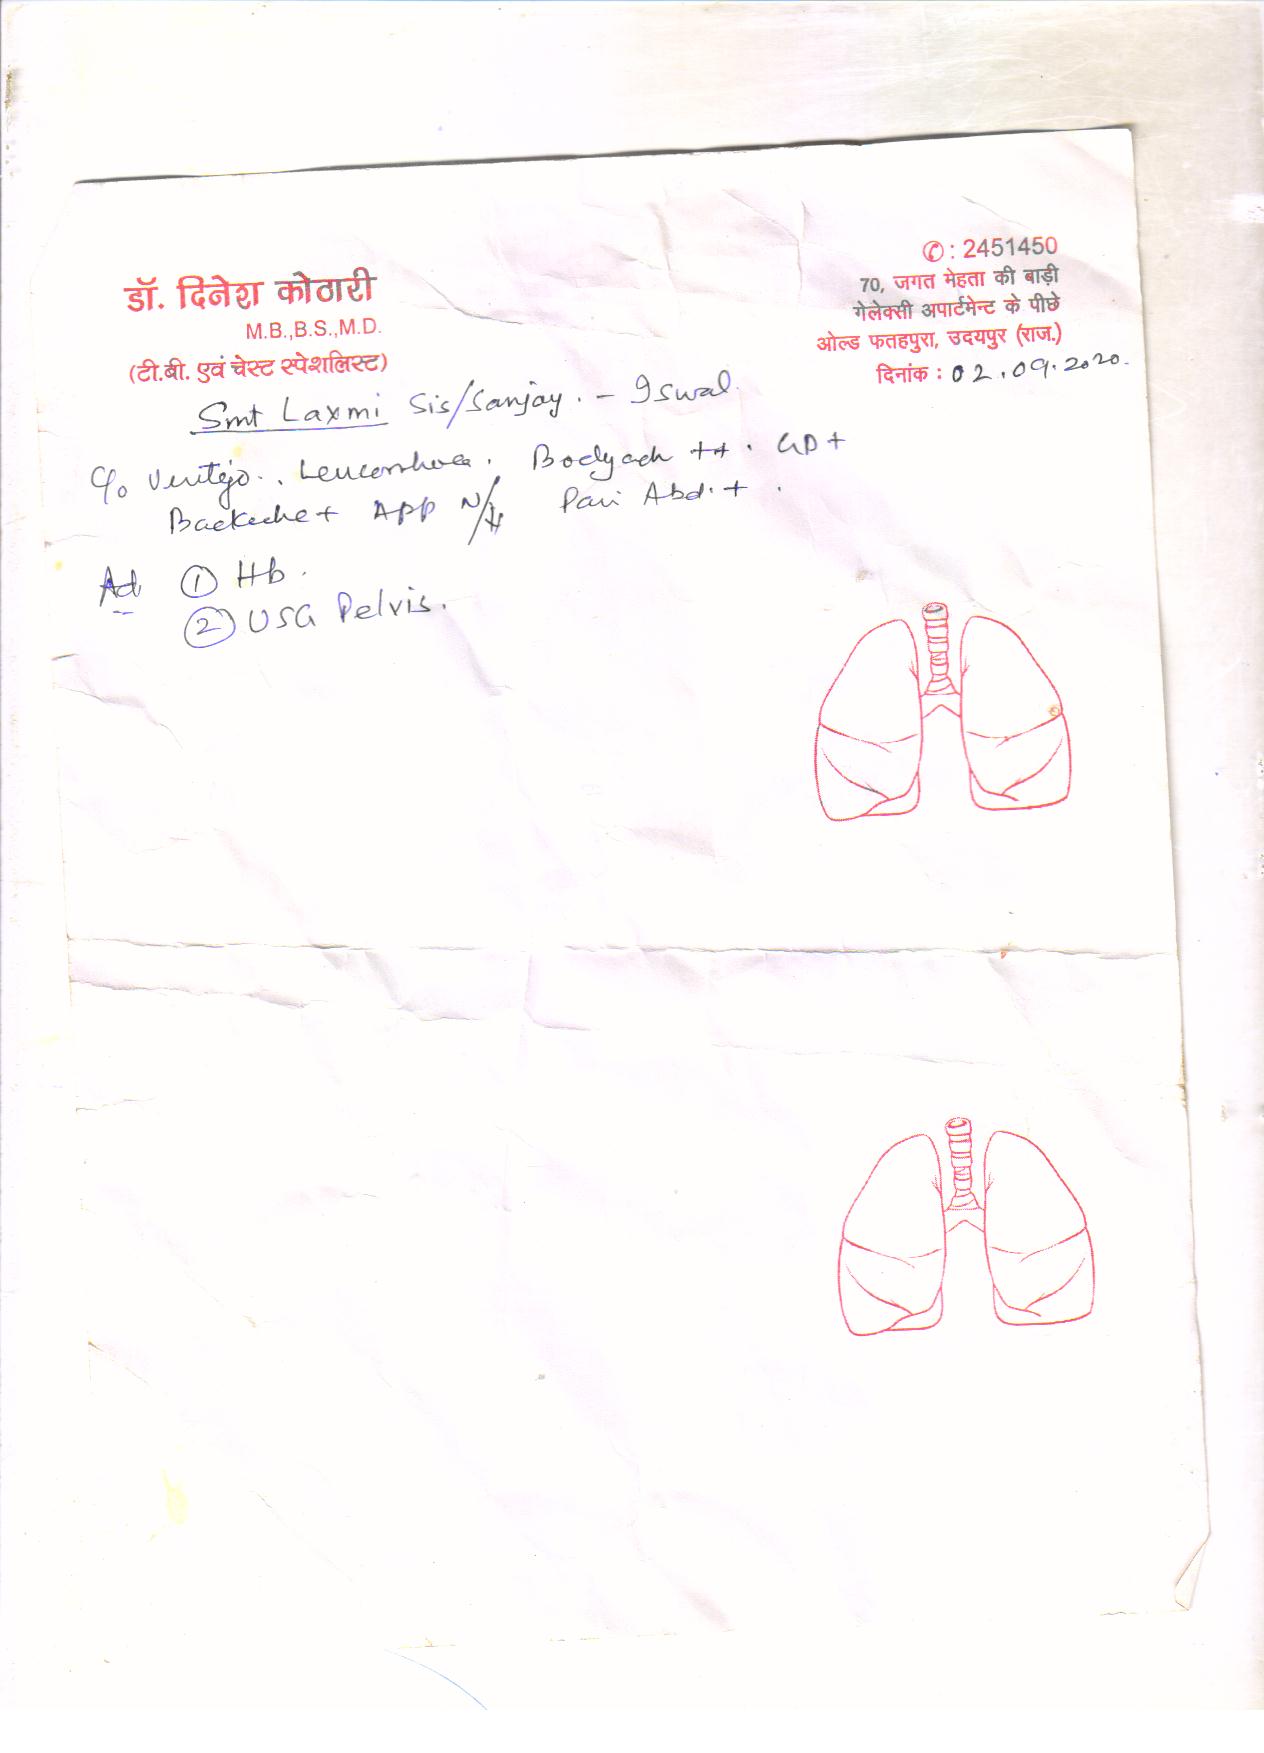 ✆ : 2451450
70, जगत मेहता की बाड़ी
गेलेक्सी अपार्टमेन्ट के पीछे
ओल्ड फतहपुरा, उदयपुर (राज.)
दिनांक : 02.09.2020.
डॉ. दिनेश कोठारी
M.B.,B.S.,M.D.
(टी.बी. एवं चेस्ट स्पेशलिस्ट)
Smt Laxmi Sis/Sanjay. - Iswal
C/o Vertigo. Leucorrhoea. Bodyach ++. GD+
Backache+ APP N/ Pain Abd.+.
Ad ① Hb.
② USG Pelvis.